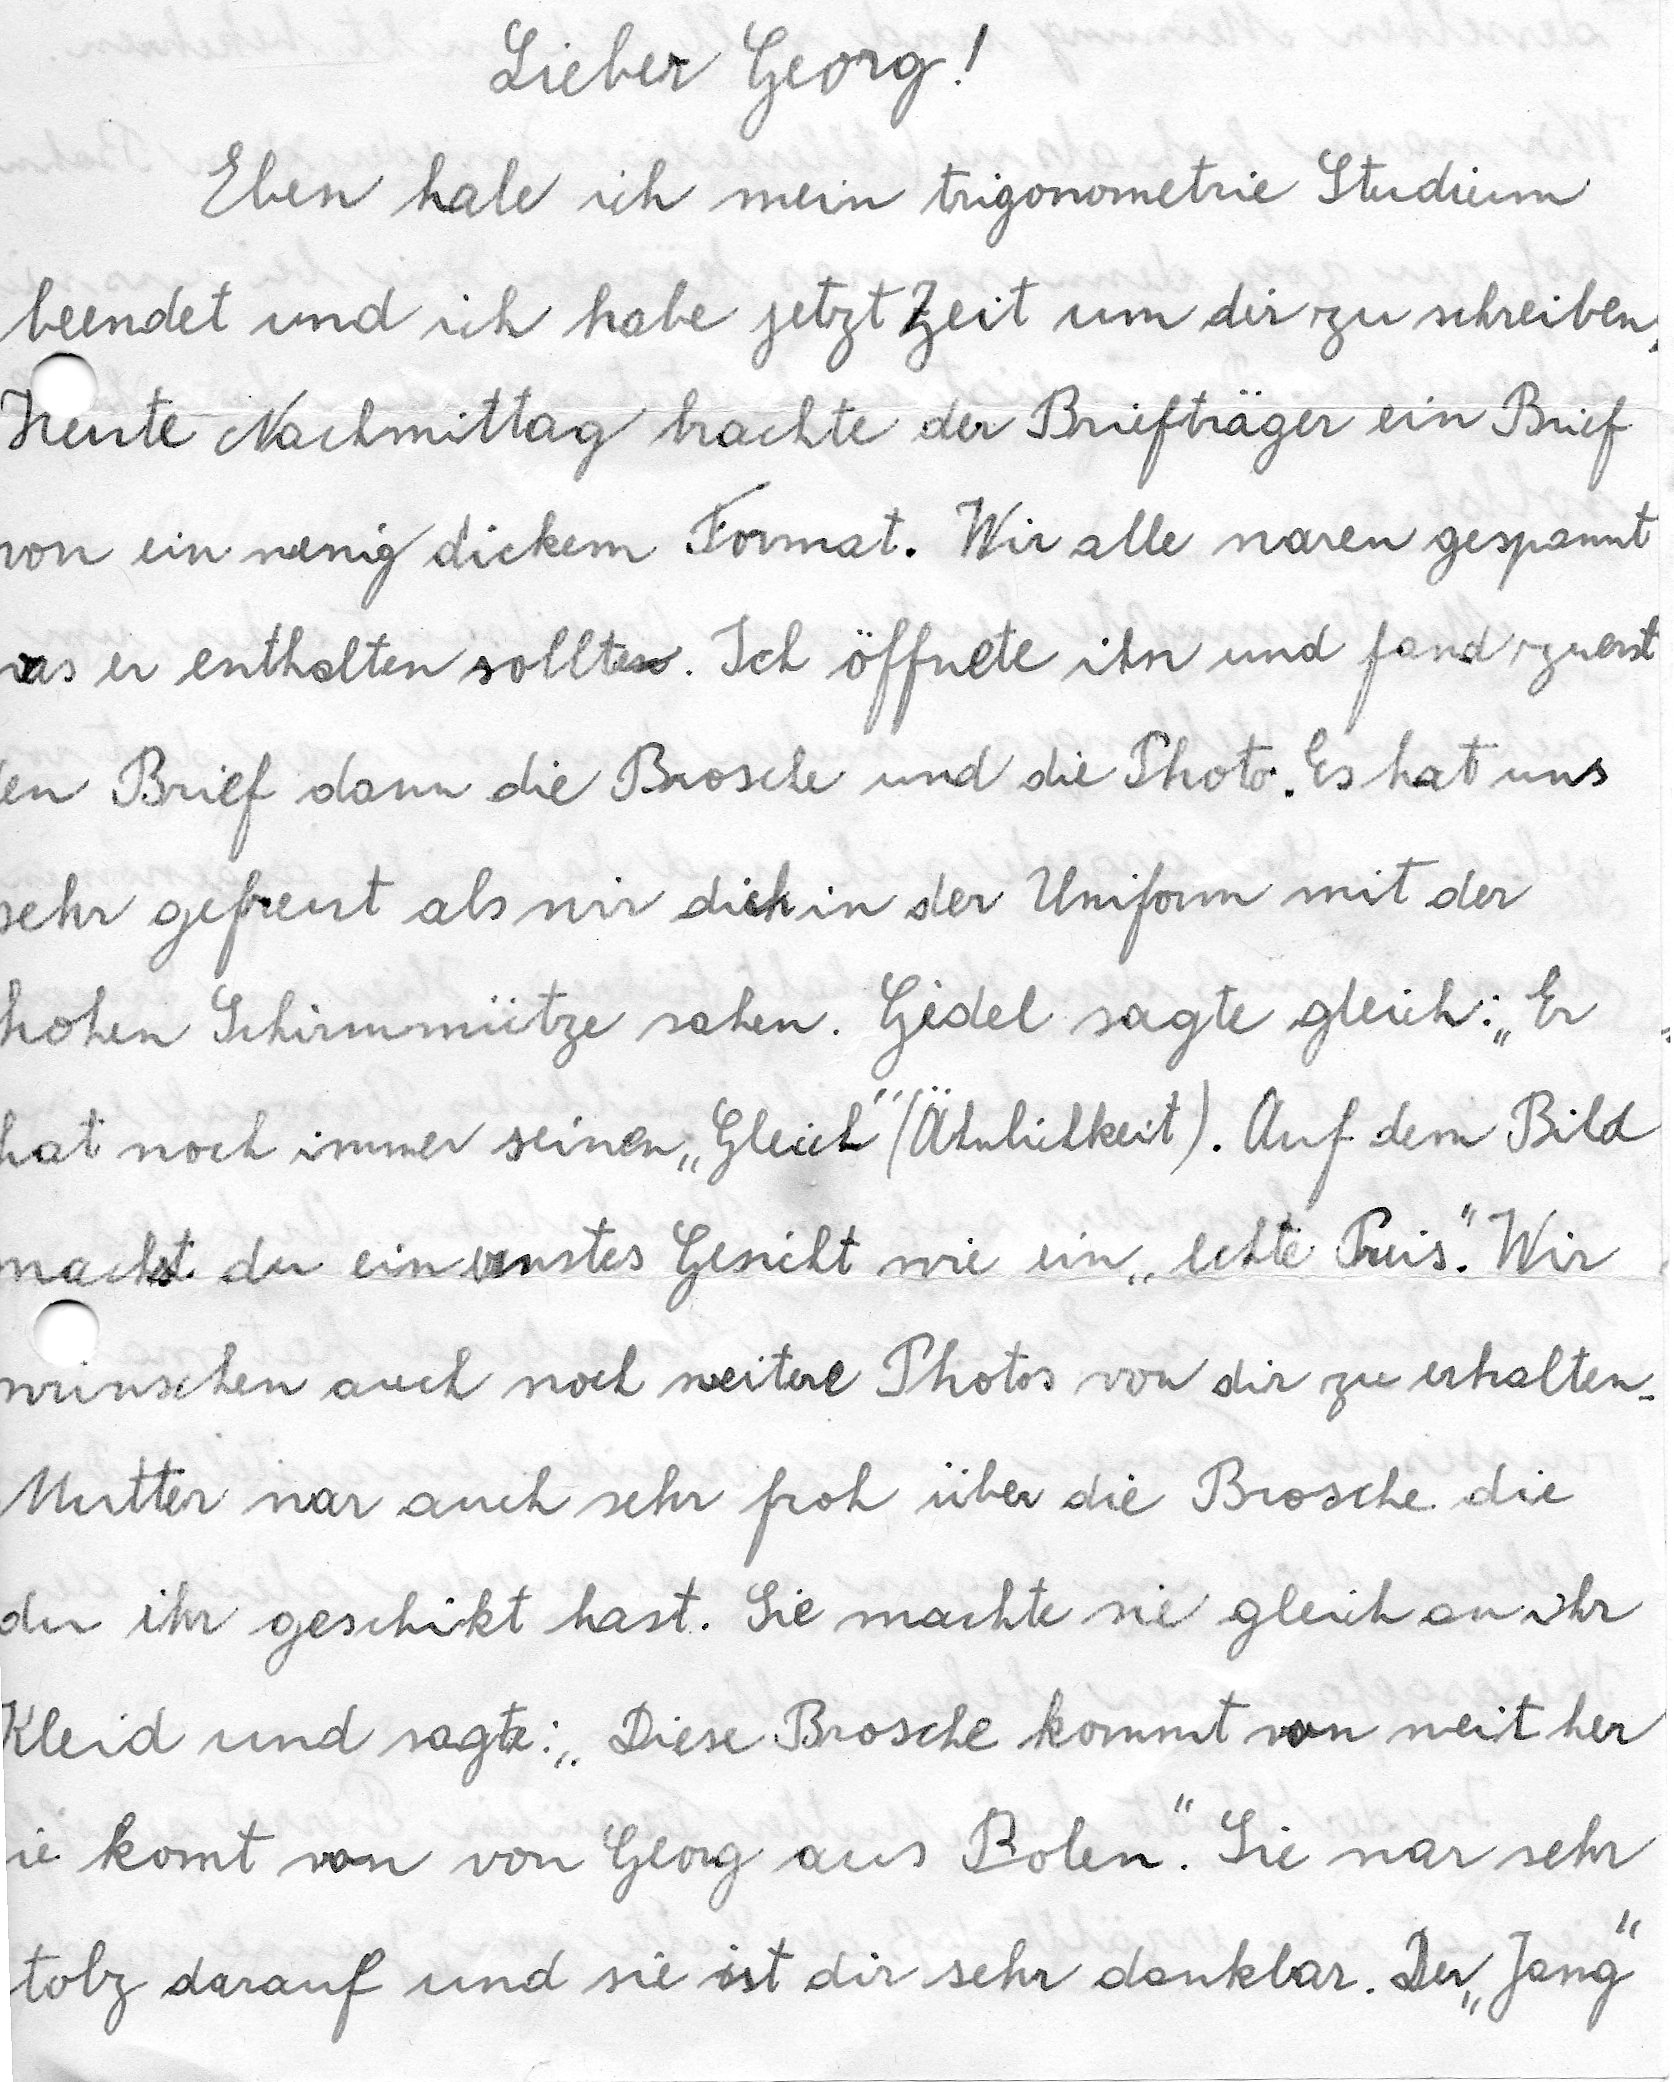 Lieber Georg!
Eben habe ich mein trigonometrie Studium
beendet und ich habe jetzt Zeit um dir zu schreiben,
Heute Nachmittag brachte der Briefträger ein Brief
von ein wenig dickem Format. Wir alle waren gespannt
was er enthalten sollte. Ich öffnete ihn und fand zuerst
en Brief dann die Brosche und die Photo. Es hat uns
sehr gefreut als wir dich in der Uniform mit der
hohen Schirmmütze sahen. Gidel sagte gleich: „Er
hat noch immer seinen „Gleich" (Ähnlichkeit). Auf dem Bild
machst du ein ernstes Gesicht wie ein „echte Preis". Wir
wünschen auch noch weitere Photos von dir zu erhalten.
Mutter war auch sehr froh über die Brosche die
du ihr geschikt hast. Sie machte sie gleich an ihr
Kleid und sagte: „Diese Brosche kommt von weit her
ie komt von von Georg aus Polen". Sie war sehr
tolz darauf und sie ist dir sehr dankbar. Der „Jang"